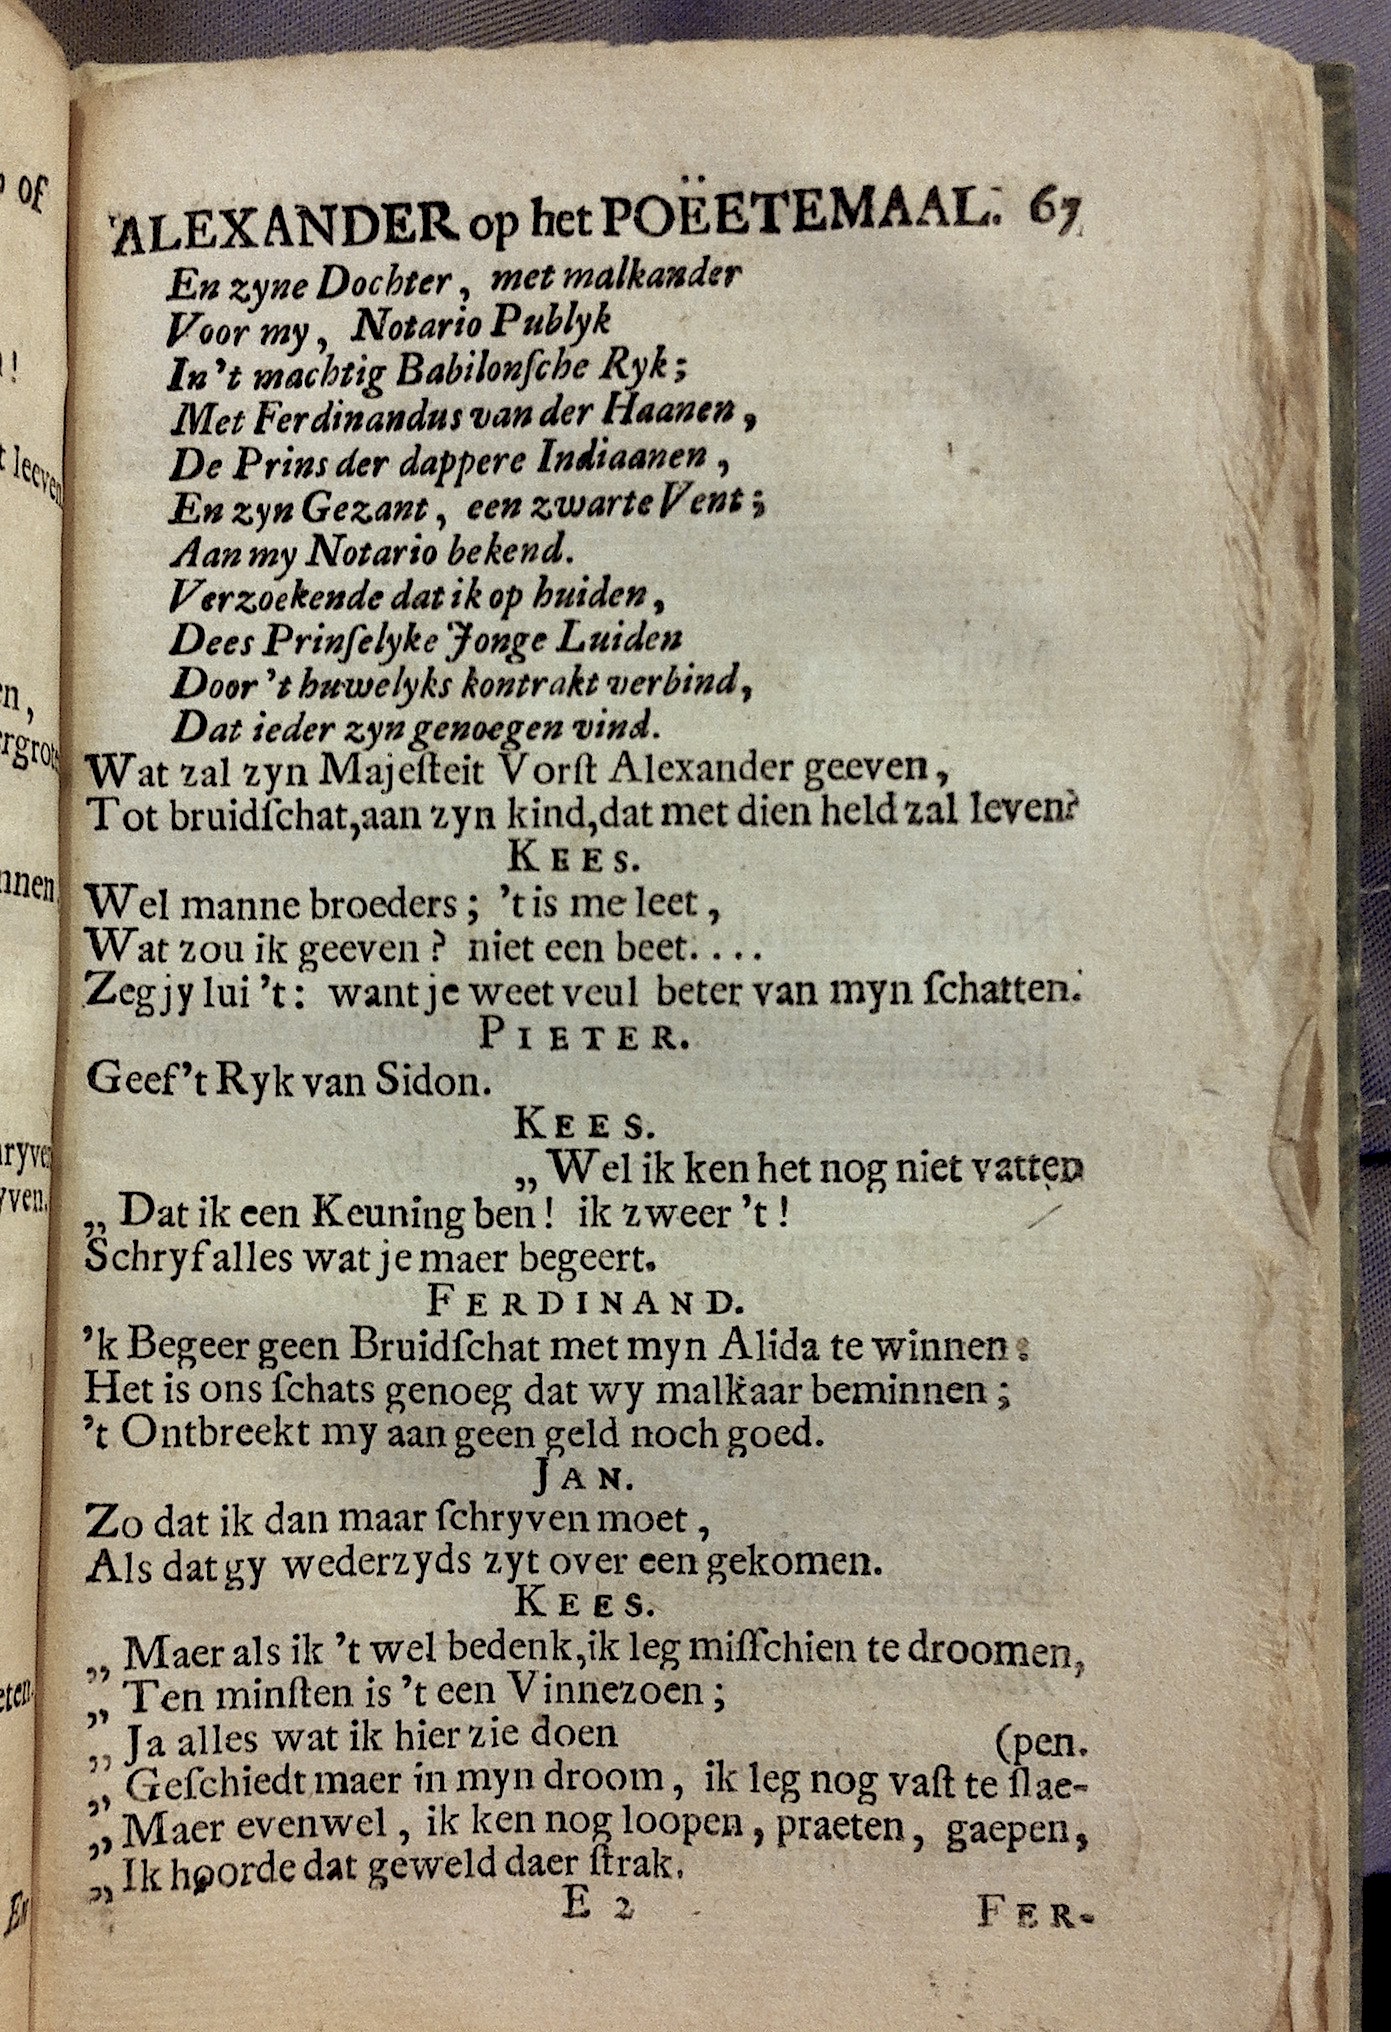 ALEXANDER op het POËETEMAAL. 67
En zyne Dochter, met malkander
Voor my, Notario Publyk
In 't machtig Babilonſche Ryk;
Met Ferdinandus van der Haanen,
De Prins der dappere Indiaanen,
En zyn Gezant, een zwarte Vent;
Aan my Notario bekend.
Verzoekende dat ik op huiden,
Dees Prinſelyke Jonge Luiden
Door 't huwelyks kontrakt verbind,
Dat ieder zyn genoegen vind.
Wat zal zyn Majeſteit Vorſt Alexander geeven,
Tot bruidſchat, aan zyn kind, dat met dien held zal leven?
KEES.
Wel manne broeders; 't is me leet,
Wat zou ik geeven? niet een beet....
Zeg jy lui 't: want je weet veul beter van myn ſchatten.
PIETER.
Geef 't Ryk van Sidon.
KEES.
„ Wel ik ken het nog niet vatten
„ Dat ik een Keuning ben! ik zweer 't!
Schryf alles wat je maer begeert.
FERDINAND.
'k Begeer geen Bruidſchat met myn Alida te winnen:
Het is ons ſchats genoeg dat wy malkaar beminnen;
't Ontbreekt my aan geen geld noch goed.
JAN.
Zo dat ik dan maar ſchryven moet,
Als dat gy wederzyds zyt over een gekomen.
KEES.
„ Maer als ik 't wel bedenk, ik leg miſſchien te droomen,
„ Ten minſten is 't een Vinnezoen;
„ Ja alles wat ik hier zie doen (pen.
„ Geſchiedt maer in myn droom, ik leg nog vaſt te ſlae-
„ Maer evenwel, ik ken nog loopen, praeten, gaepen,
„ Ik hoorde dat geweld daer ſtrak.
E 2 FER-
of
!
t leeven
en,
nnen
yven.
eten.
En